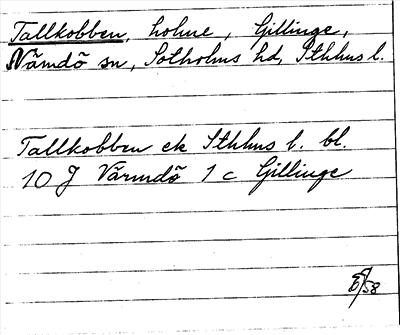 Tallkobben, holme, Gillinge,
Nämdö sn, Sotholms hd, Sthlms l.
Tallkobben ek Sthlms l. bl.
10 J Värmdö 1 c Gillinge